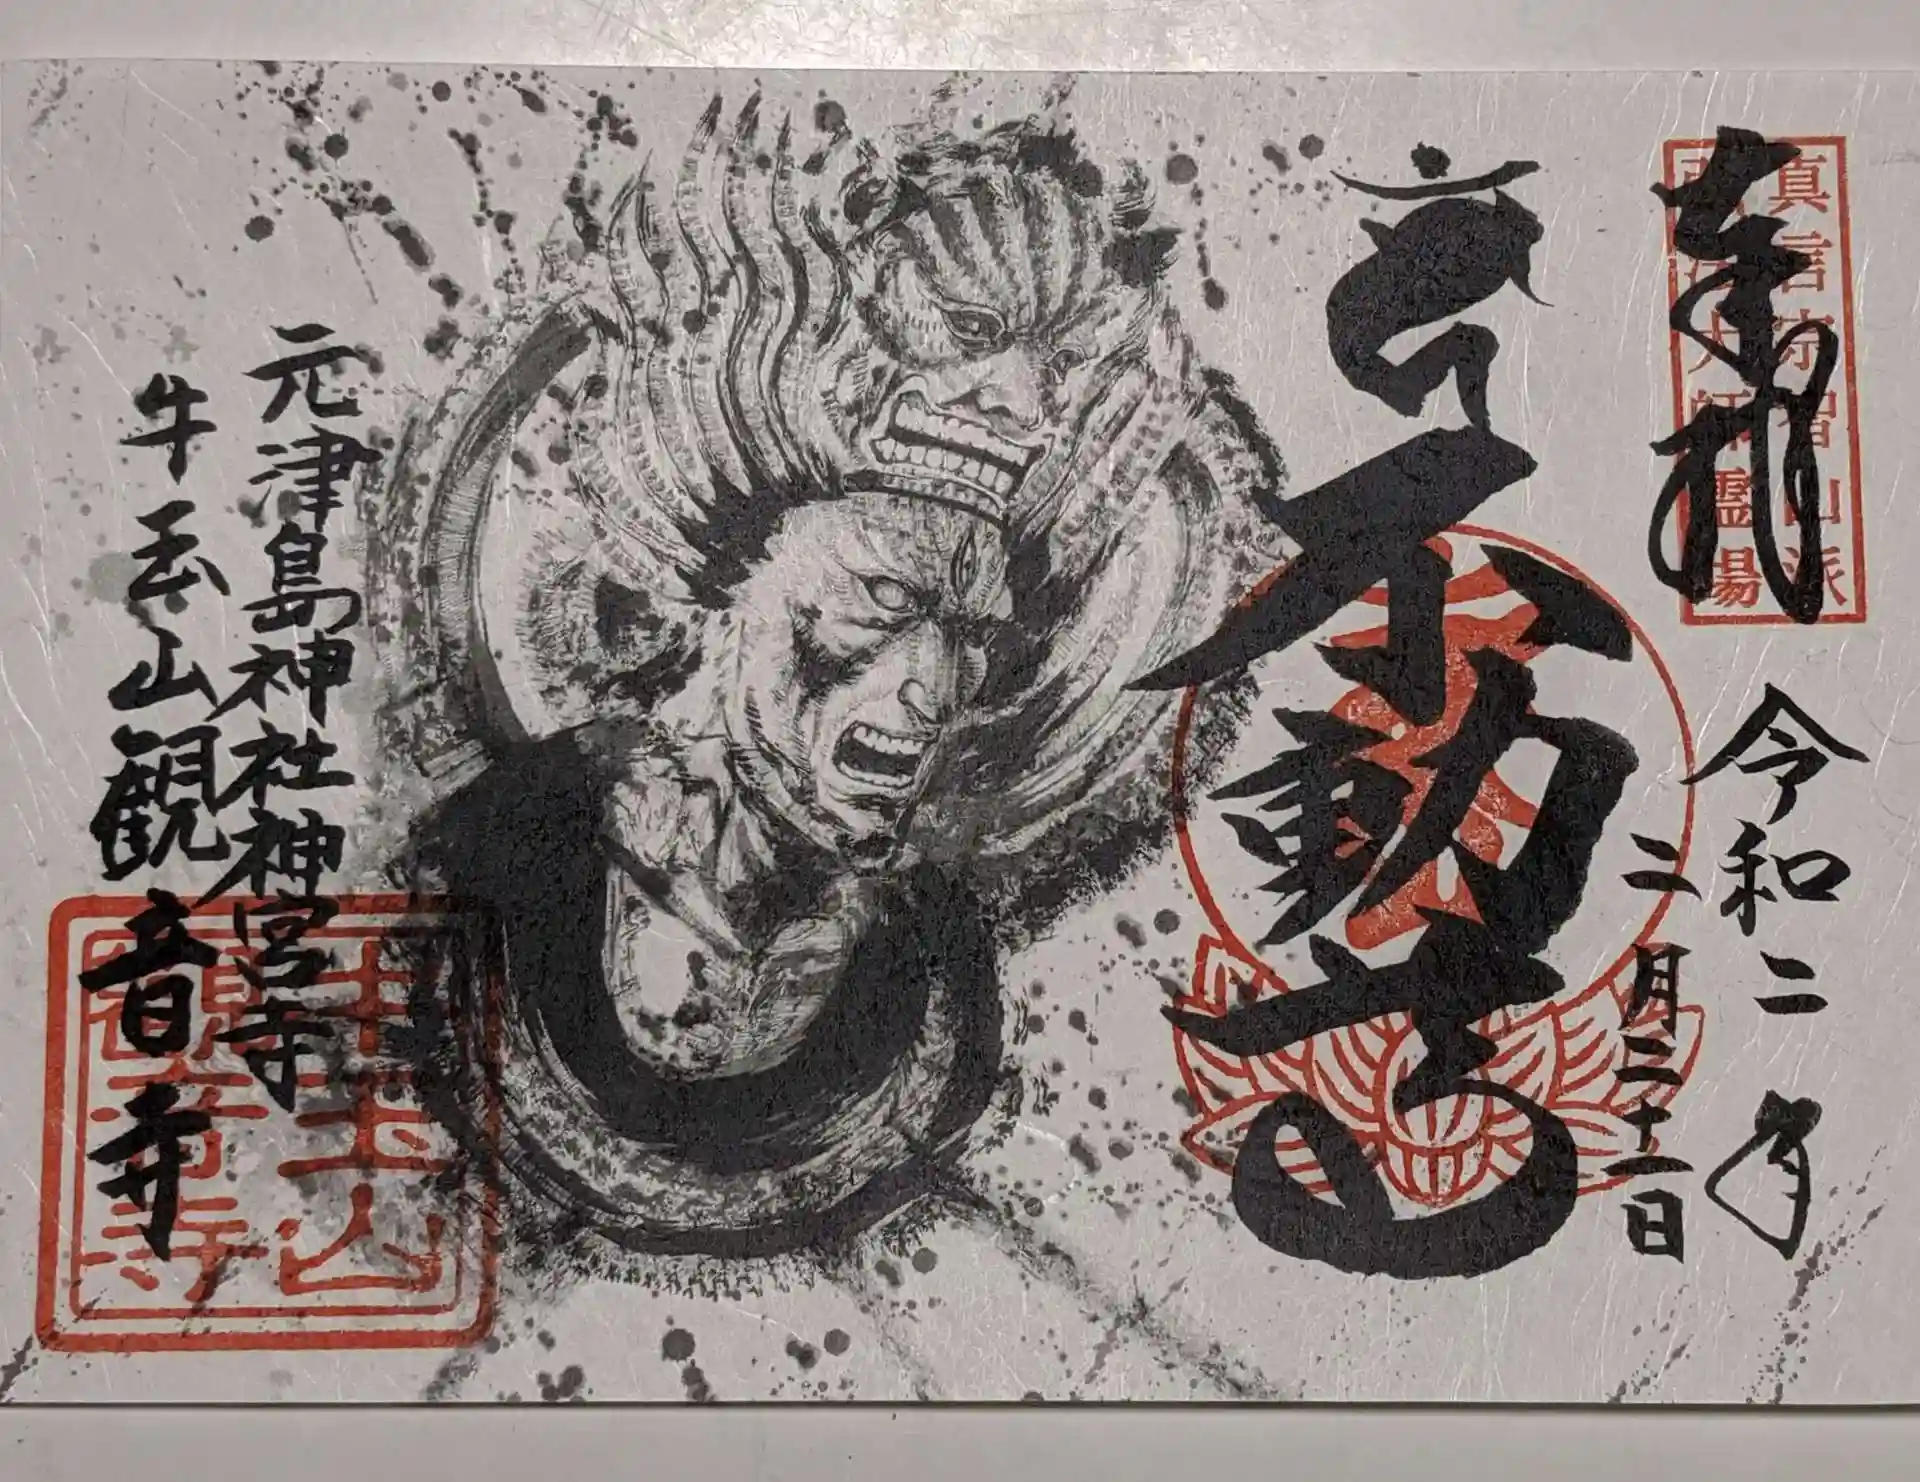 奉拝
真言宗智山派
弘法大師霊場
令和二年
二月二十二日
不動尊
元津島神社神宮寺
牛玉山観音寺
牛玉山
観音寺